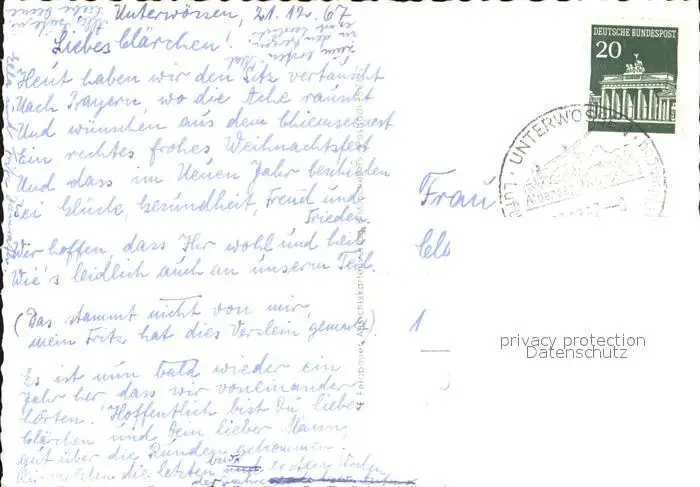 Unterwössen, 21.12.67
Liebes Clärchen!
Heut haben wir den Sitz vertauscht
Nach Bayern, wo die Ache rauscht
Und wünschen aus dem Chiemseenest
Ein rechtes frohes Weihnachtsfest
Und dass im Neuen Jahr beschieden
Sei Glück, Gesundheit, Freud und
Frieden.
Wir hoffen, dass Ihr wohl und heil
Wie's leidlich auch an unserm Teil.
(Das stammt nicht von mir,
mein Fritz hat dies Verslein gemacht).
Es ist nun bald wieder ein
Jahr her, dass wir voneinander
hörten. Hoffentlich bist Du, liebes
Clärchen und Dein lieber Mann,
gut über die Runden gekommen.
Wir die letzten bzw. ersten
der Jahre
DEUTSCHE BUNDESPOST
20
UNTERWÖSSEN
Frau
Clä
1
privacy protection
Datenschutz